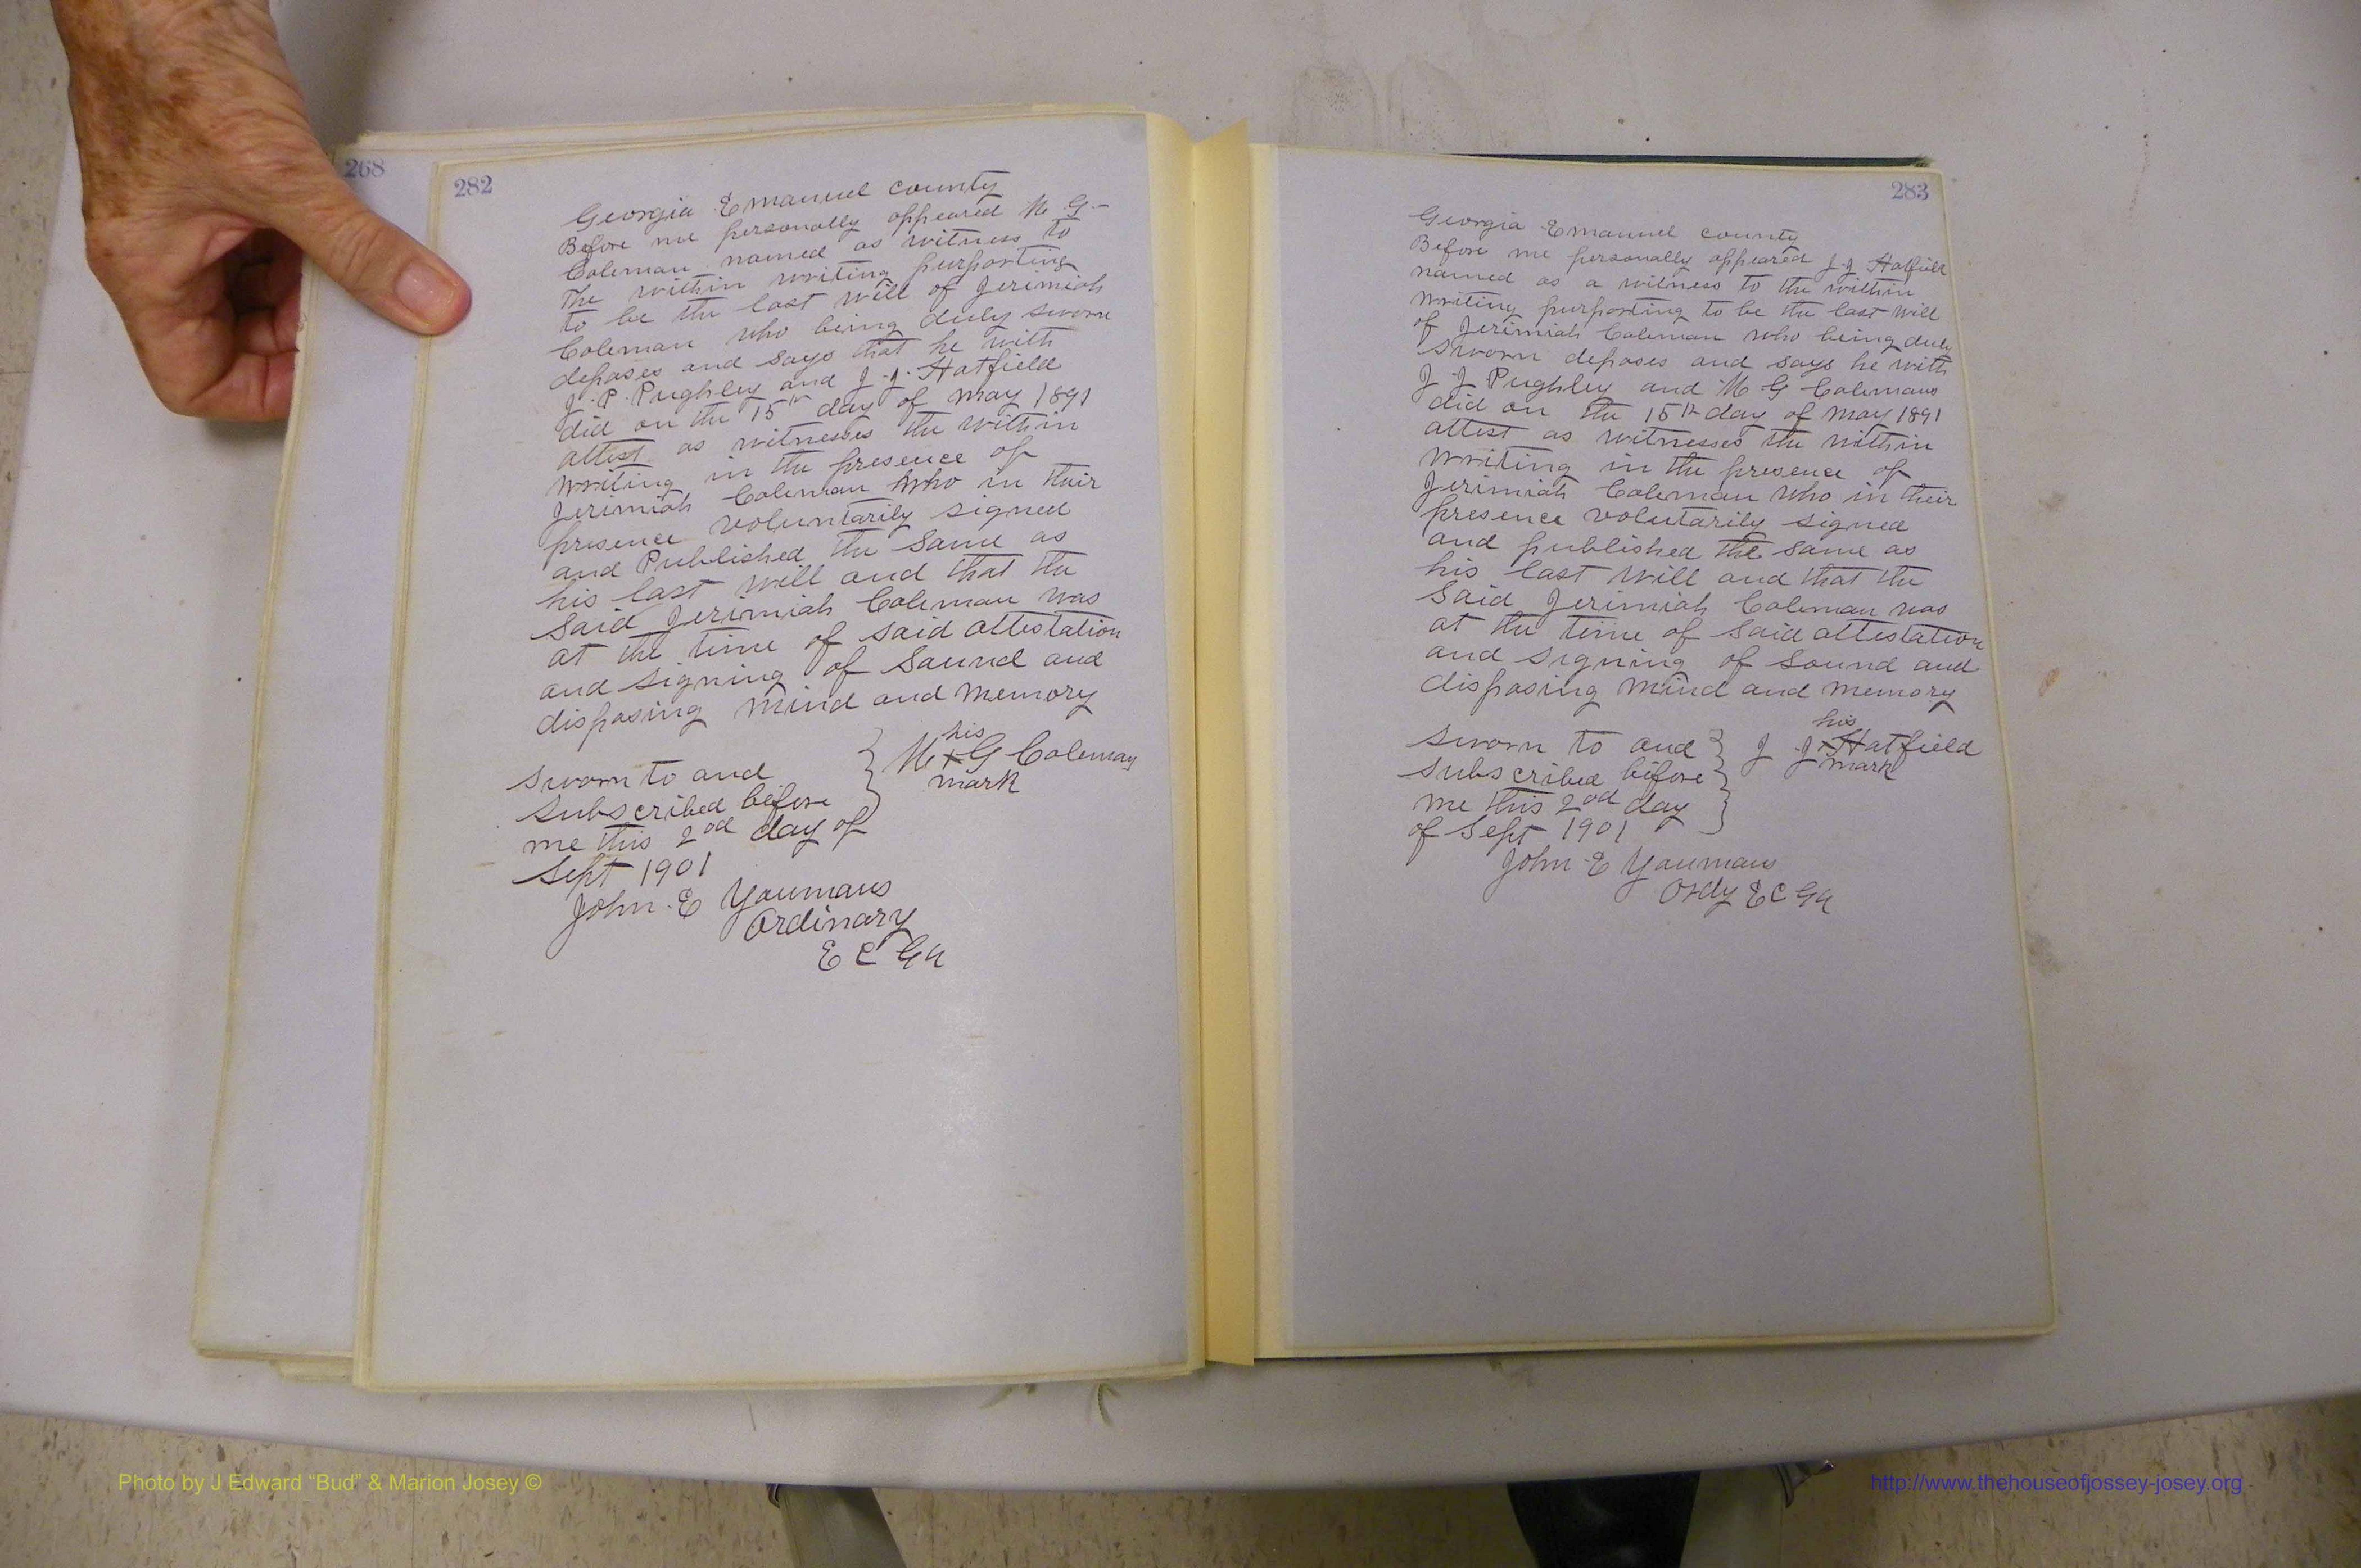 268
282
Georgia Emanuel county
Before me personally appeared M G-
Coleman named as witness to
the within writing purporting
to be the last will of Jerimiah
Coleman who being duly sworn
deposes and says that he with
J. P. Pughley and J. J. Hatfield
did on the 15th day of may 1891
attest as witnesses the within
writing in the presence of
Jerimiah Coleman who in their
presence voluntarily signed
and Published the same as
his last will and that the
said Jerimiah Coleman was
at the time of said attestation
and signing of sound and
disposing mind and memory
his
M x G Coleman
mark
sworn to and
subscribed before
me this 2nd day of
Sept 1901
John E Youmans
Ordinary
E C Ga
283
Georgia Emanuel county
Before me personally appeared J. J Hatfield
named as a witness to the within
writing purporting to be the last will
of Jerimiah Coleman who being duly
sworn deposes and says he with
J J Pughley and M G Colemans
did on the 15th day of may 1891
attest as witnesses the within
writing in the presence of
Jerimiah Coleman who in their
presence volutarily signed
and published the same as
his last will and that the
said Jerimiah Coleman was
at the time of said attestation
and signing of sound and
disposing mind and memory
his
sworn to and J J x Hatfield
subscribed before mark
me this 2nd day
of Sept 1901
John E Youmans
Ordy E C Ga
Photo by J Edward “Bud” & Marion Josey ©
http://www.thehouseofjossey-josey.org